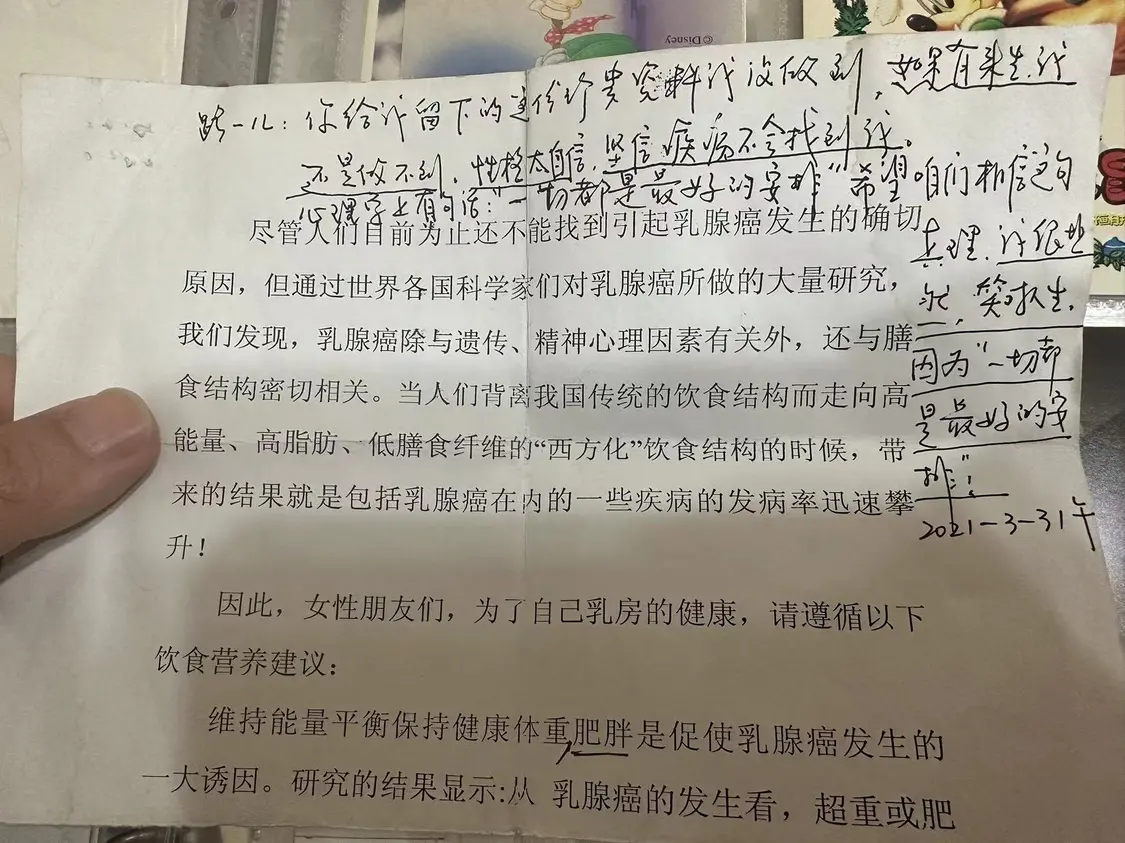 ©Disney
你给我留下的这份珍贵资料我没做到，如果有来生，我
还是做不到，性格太自信，坚信疾病不会找到我。
心理学上有句话："一切都是最好的安排"希望咱们相信这句
真理，我很坦
然，笑对人生，
因为"一切都
是最好的安
排"！
2021-3-31午
尽管人们目前为止还不能找到引起乳腺癌发生的确切
原因，但通过世界各国科学家们对乳腺癌所做的大量研究，
我们发现，乳腺癌除与遗传、精神心理因素有关外，还与膳
食结构密切相关。当人们背离我国传统的饮食结构而走向高
能量、高脂肪、低膳食纤维的“西方化”饮食结构的时候，带
来的结果就是包括乳腺癌在内的一些疾病的发病率迅速攀
升！
因此，女性朋友们，为了自己乳房的健康，请遵循以下
饮食营养建议：
维持能量平衡保持健康体重,肥胖是促使乳腺癌发生的
一大诱因。研究的结果显示:从 乳腺癌的发生看，超重或肥